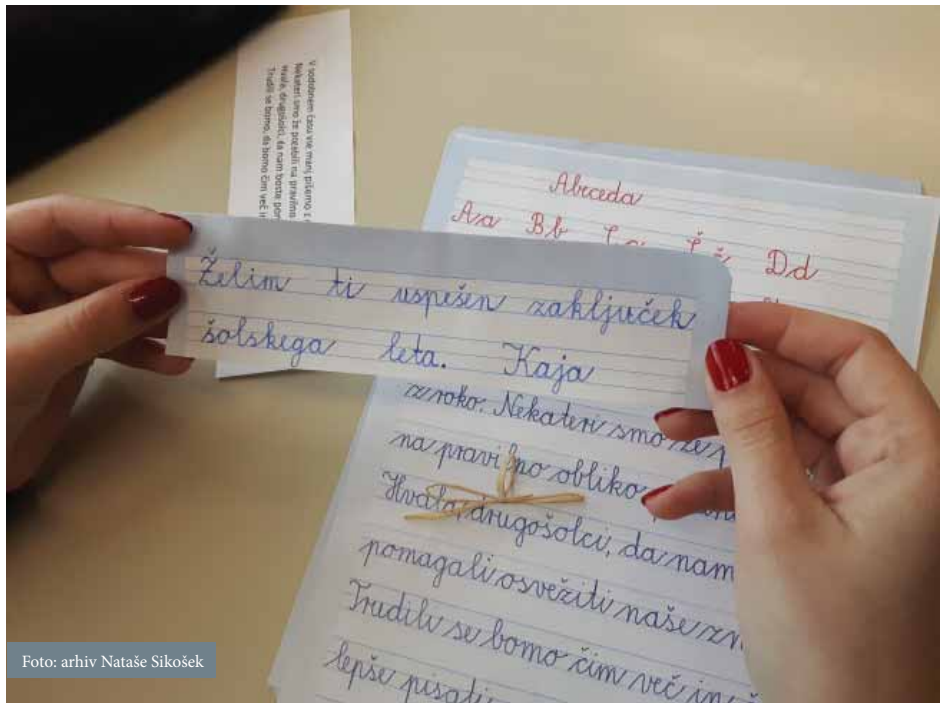 V sodobnem času vse manj pišemo z
Nekateri smo že pozabili na pravilno
Hvala, drugošolci, da nam boste
Trudili se bomo, da bomo čim več in
Abeceda
Aa Bb Cc Čč Dd
Želim ti uspešen zaključek
šolskega leta. Kaja
z roko. Nekateri smo že
na pravilno obliko
Hvala, drugošolci, da nam
pomagali osvežiti naše
Trudili se bomo čim več in
lepše pisati
Foto: arhiv Nataše Sikošek